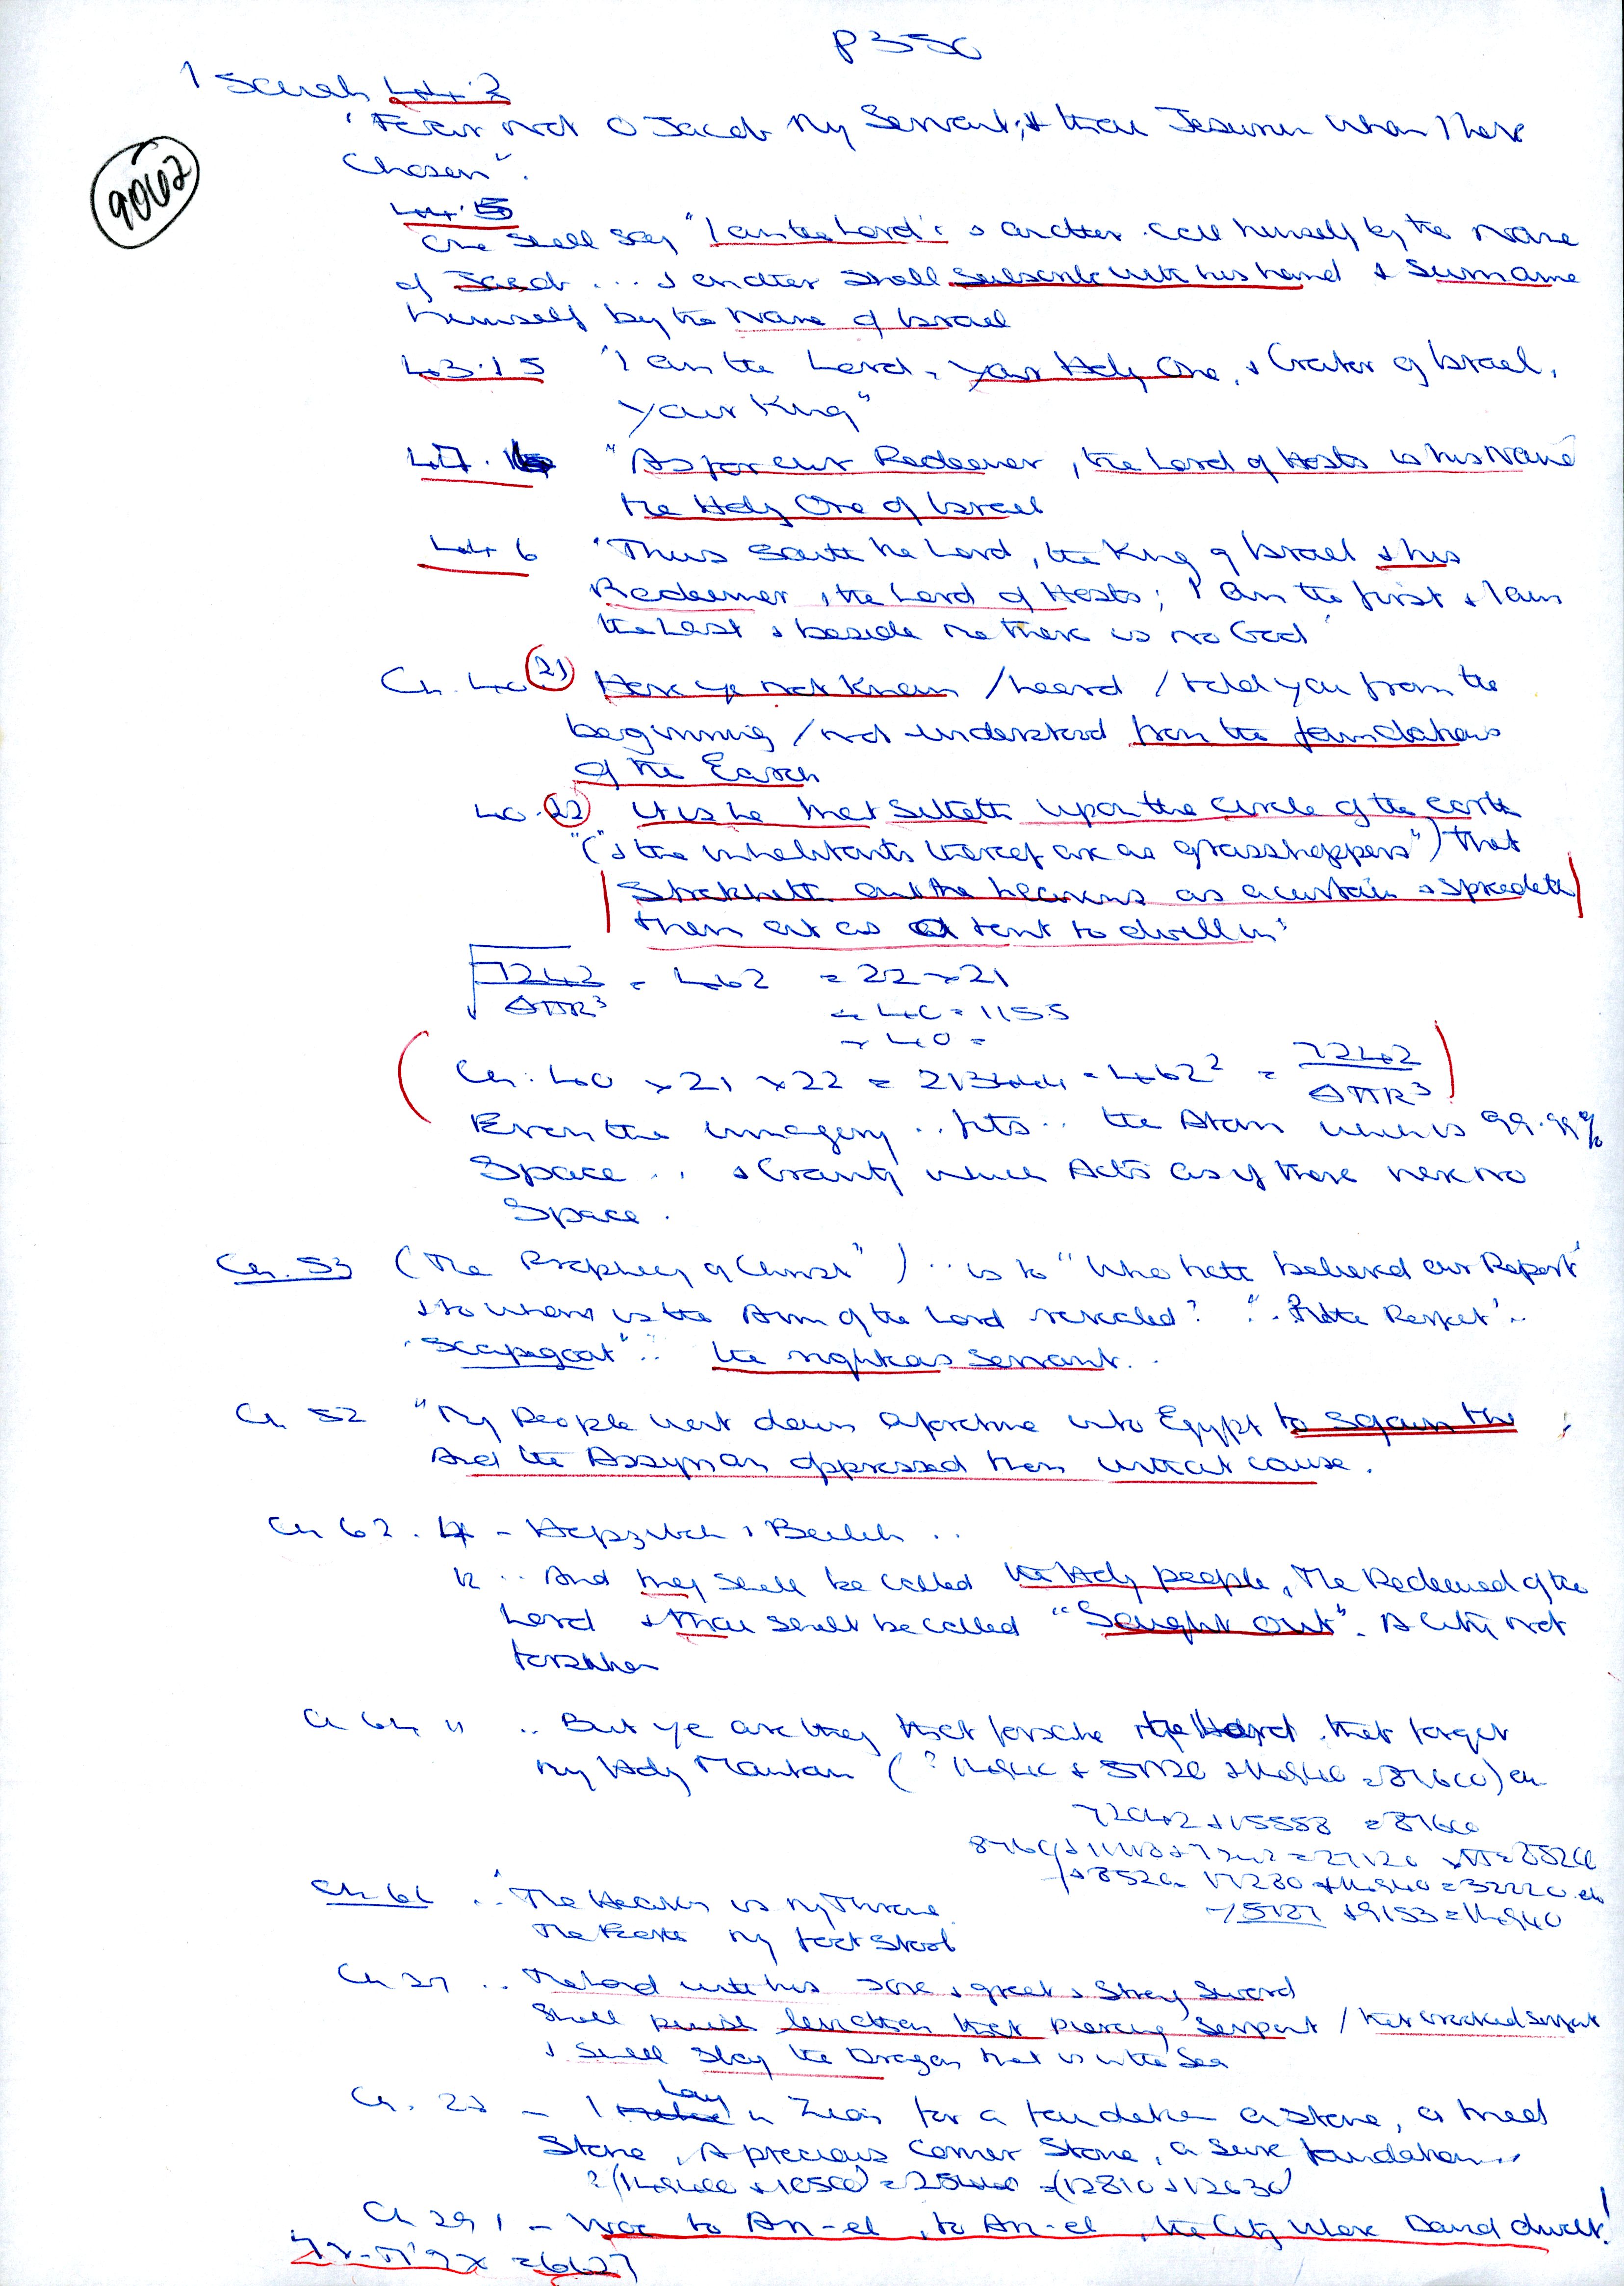 P350
9062
Isaiah 44:2
"Fear not O Jacob My Servant; & thou Jesurun whom I have
Chosen".
44:5
One shall say "I am the Lord's & another call himself by the Name
of Jacob ... & another shall subscribe with his hand & Surname
himself by the Name of Israel
43:15 "I am the Lord, your Holy One, & Creator of Israel,
your King"
47. "As for our Redeemer, the Lord of Hosts is his Name
the Holy One of Israel
44 6 "Thus saith the Lord, the King of Israel & his
Redeemer, the Lord of Hosts; I am the first & I am
the Last & beside me there is no God'
Ch. 40 21 Have ye not known / heard / told you from the
beginning / not understood from the foundations
of the Earth
40. 22 It is he that sitteth upon the circle of the earth
"(& the inhabitants thereof are as grasshoppers") That
Stretcheth out the heavens as a curtain & spreadeth
them out as a tent to dwell in'
= 462 = 22 × 21
÷ 40 = 11.55
× 40 =
(Ch. 40 × 21 × 22 = 213444 = 462² = )
Even the imagery .. fits .. the Atom which is 99.99%
Space .. & Gravity which Acts as if there were no
Space.
Ch. 53 (The Prophecy of Christ") .. is to "Who hath believed our Report'
& to whom is the Arm of the Lord revealed?
"Scapegoat" .. the righteous Servant..
Ch 52 "My People went down aforetime into Egypt to sojourn there
And the Assyrian oppressed them without cause.
Ch 62. 4 - Hepzibah & Beulah ..
12 .. And they shall be called the Holy people, The Redeemed of the
Lord & thou shalt be called "Sought out". A City not
forsaken
Ch 64 11 .. But ye are they that forsake the Lord that forget
my Holy Mountain
Ch 66 .. 'The Heaven is my Throne
The Earth my foot stool
Ch 27 .. The Lord with his sore & great & Strong Sword
Shall punish leviathan that piercing Serpent / that crooked serpent
& shall slay the Dragon that is in the Sea
Ch. 28 - I Lay in Zion for a foundation a stone, a tried
Stone, A precious Corner Stone, a sure foundation..
Ch 29 1 - Woe to Ari-el, to Ari-el, the City where David dwelt!